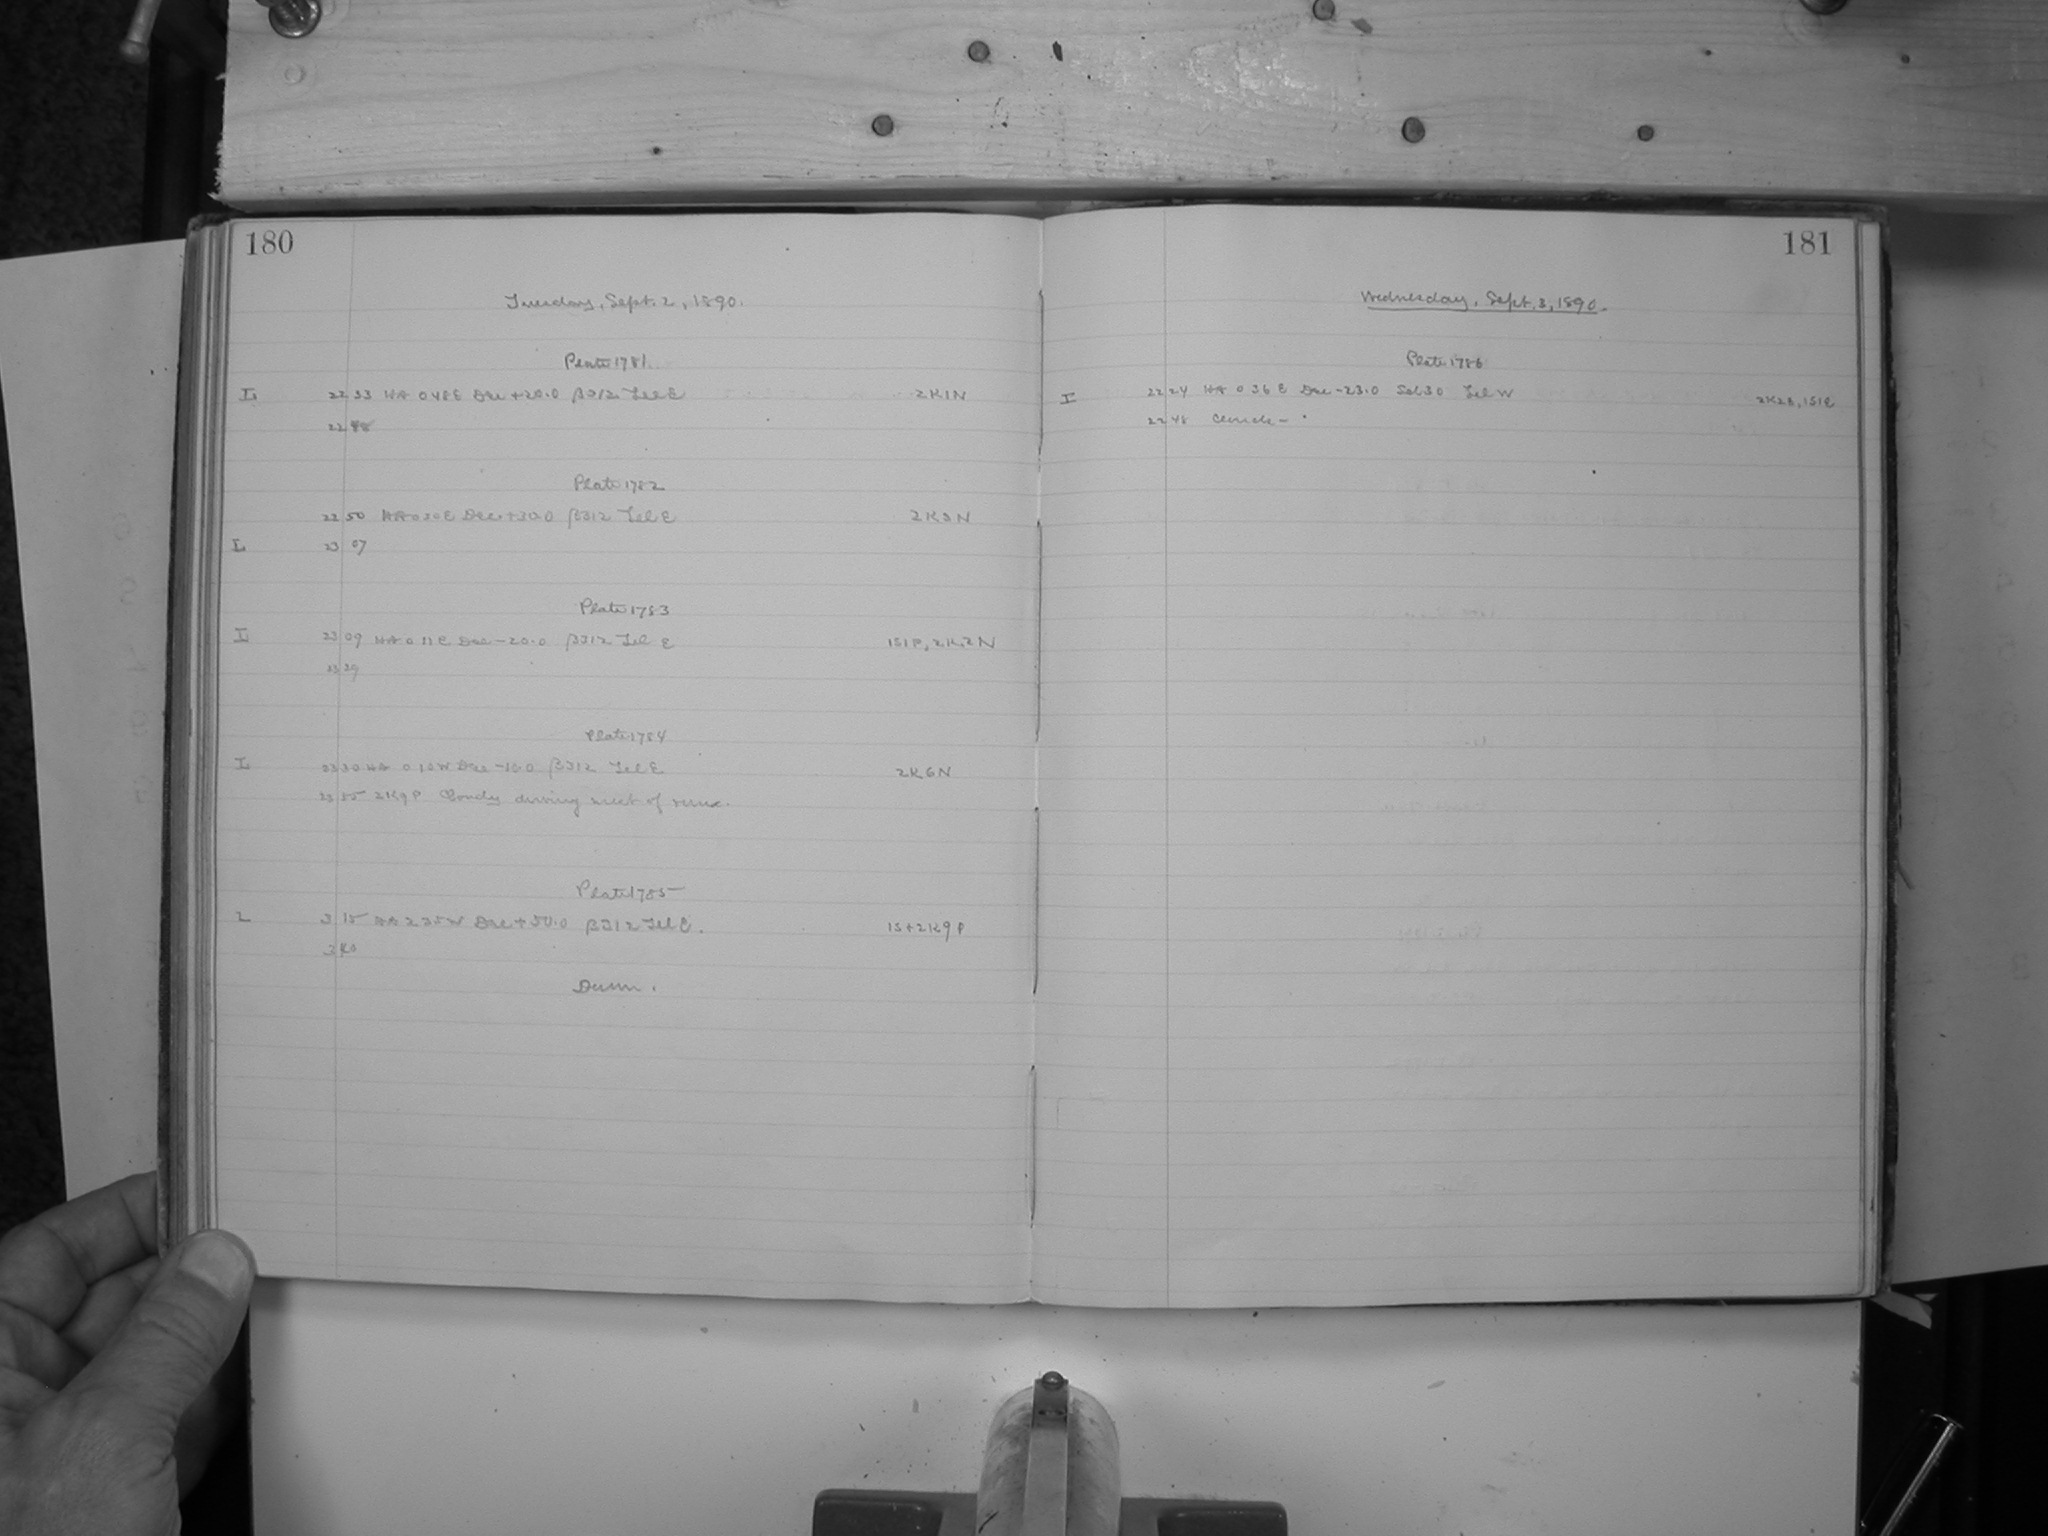 180
Tuesday, Sept. 2, 1890.
Plate 1781.
I. 22 33 HA 0 48 E Dec +20.0 β312 Tel E 2K1N
22 48
Plate 1782
22 50 HA 0 30 E Dec. +30.0 β312 Tel E 2K3N
I. 23 07
Plate 1783
I. 23 09 HA 0 11 E Dec -20.0 β312 Tel E 1S1P, 2K2N
23 29
Plate 1784
I. 23 30 HA 0 10 W Dec -10.0 β312 Tel E 2K6N
23 55 2K9P Cloudy during most of
Plate 1785
3 15 HA 2 35 W Dec +50.0 β312 Tel E. 1S+2K9P
3 40
Dawn.
181
Wednesday, Sept. 3, 1890.
Plate 1786
I 22 24 HA 0 36 E Dec -23.0 Tel W
22 48 Clouds-